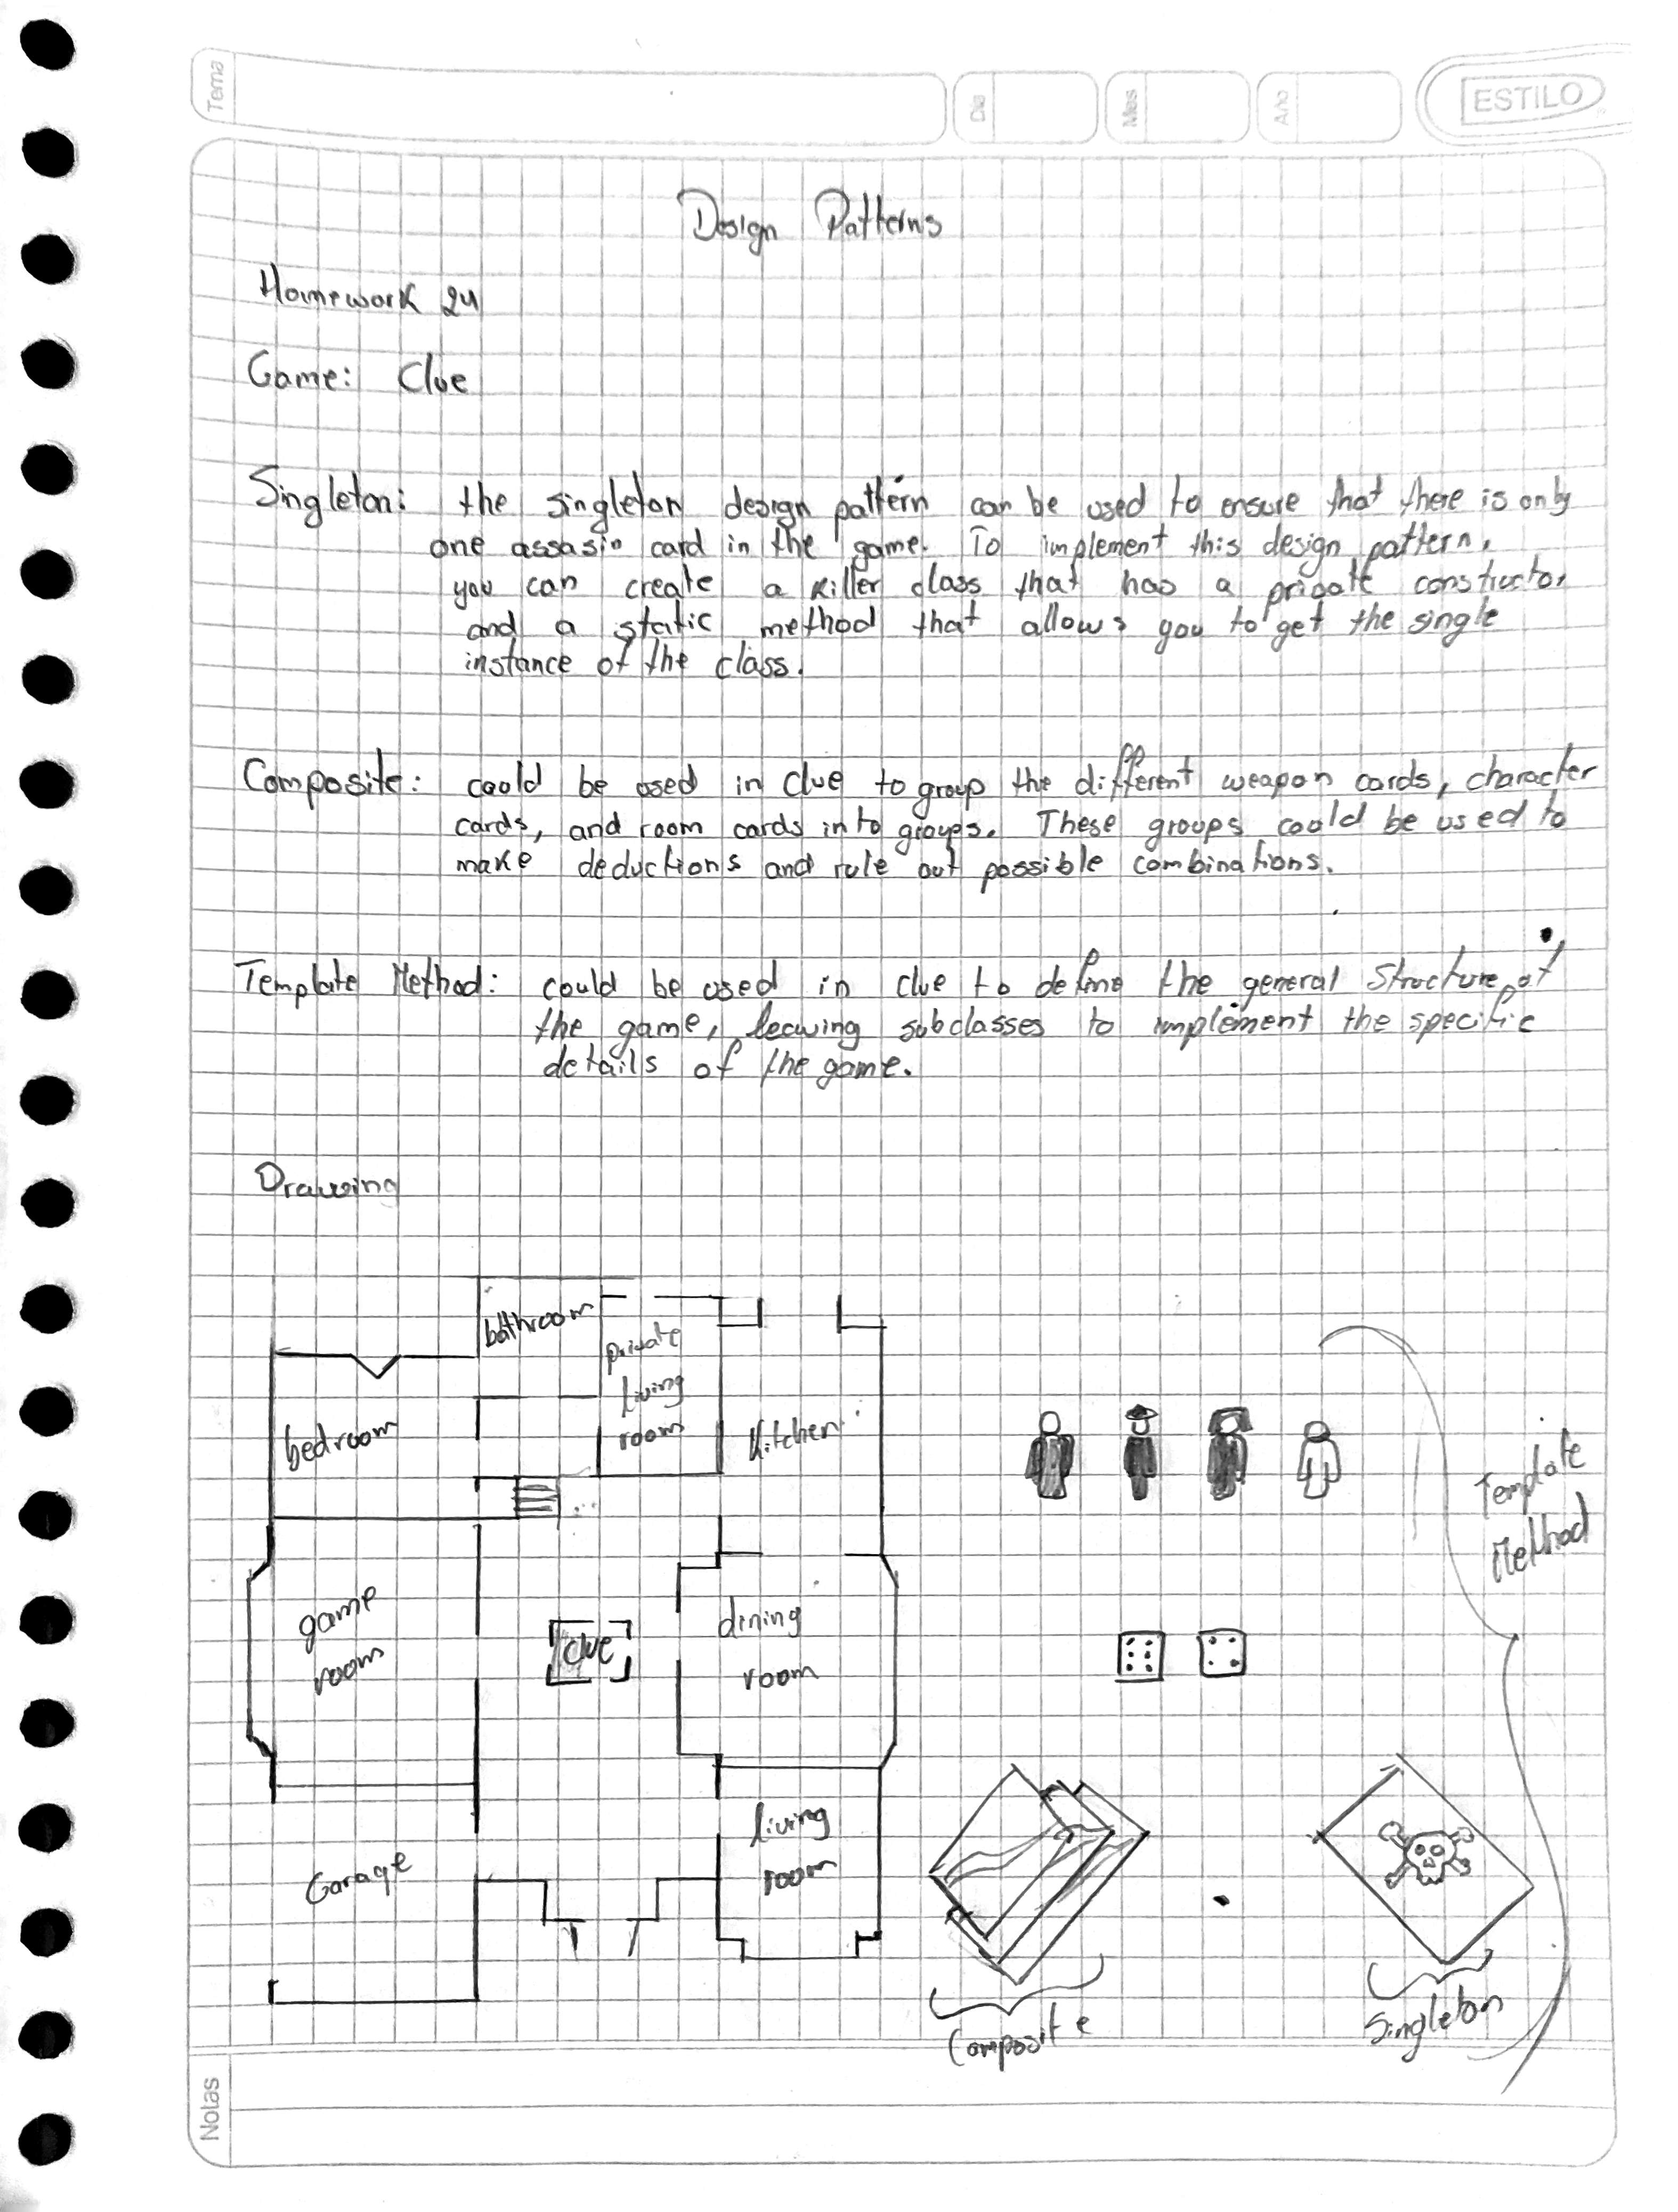 Tema
Dia
Mes
Año
ESTILO
Design Patterns
Homework 24
Game: Clue
Singleton: the singleton design pattern can be used to ensure that there is only
one assasin card in the game. To implement this design pattern,
you can create a killer class that has a private constructor
and a static method that allows you to get the single
instance of the class.
Composite: could be used in clue to group the different weapon cards, character
cards, and room cards into groups. These groups could be used to
make deductions and rule out possible combinations.
Template Method: could be used in clue to define the general structure of
the game, leawing subclasses to implement the specific
details of the game.
Drawing
bathroom
private
living
room
kitchen
bedroom
Template
Method
game
room
clue
dining
room
living
room
Garage
Composite
Singleton
Notas